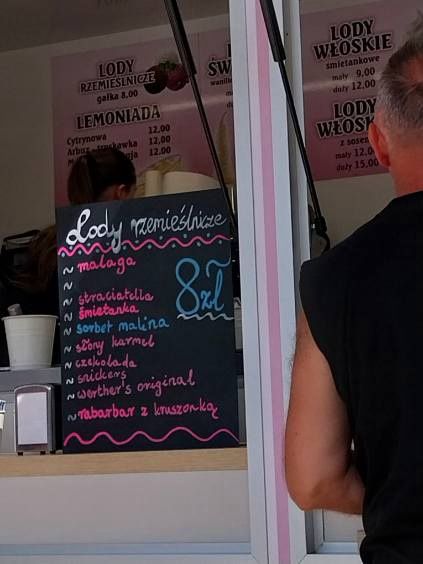 LODY
RZEMIEŚLNICZE
gałka 8,00
LEMONIADA
Cytrynowa 12,00
12,00
12,00
LODY
WŁOSKIE
śmietankowe
mały 9,00
duży 12,00
LODY
WŁOSKIE
z sosem
mały 12,00
duży 15,00
Lody rzemieślnicze
~ malaga
~
~ straciatella
~ śmietanka
~ sorbet malina
~ słony karmel
~ czekolada
~ snickers
~ werther's original
~ rabarbar z kruszonką
8zł